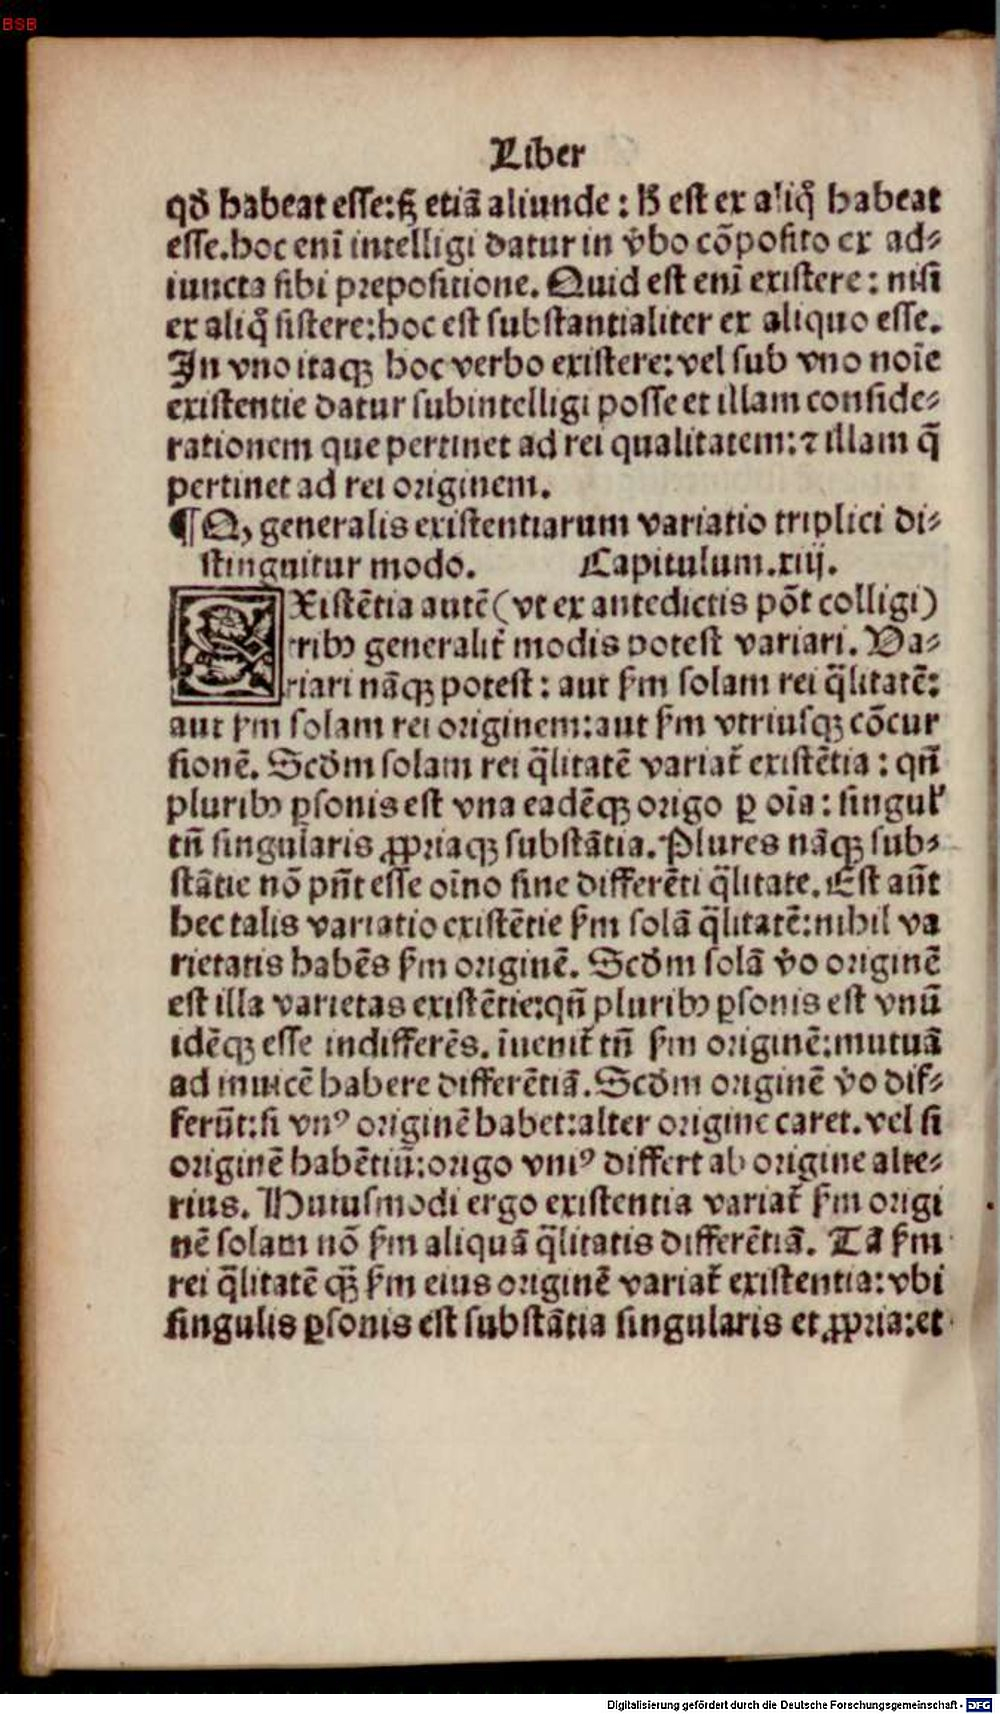 BSB
Liber
qđ habeat esse:sʒ etiā aliunde : ħ est ex aliq̄ habeat
esse.hoc enī intelligi datur in v̾bo cōposito ex ad⸗
iuncta sibi prepositione. Quid est enī existere : nisi
ex aliq̄ sistere:hoc est substantialiter ex aliquo esse.
In vno itaqꝫ hoc verbo existere:vel sub vno noīe
existentie datur subintelligi posse et illam conside⸗
rationem que pertinet ad rei qualitatem:⁊ illam q̄
pertinet ad rei originem.
¶ Q, generalis existentiarum variatio triplici di⸗
stinguitur modo. Capitulum.xiij.
EXistētia autē (vt ex antedictis pōt colligi)
tribꝰ generalit̄ modis potest variari. Va⸗
riari nāqꝫ potest : aut ẜm solam rei q̄litatē:
aut ẜm solam rei originem:aut ẜm vtriusqꝫ cōcur
sionē. Scđm solam rei q̄litatē variat̄ existētia : qn̄
pluribꝰ ꝑsonis est vna eadēqꝫ origo ꝑ oīa : singul̓
tn̄ singularis ꝓpriaqꝫ substātia. Plures nāqꝫ sub⸗
stātie nō pn̄t esse oīno sine differēti q̄litate. Est aūt
hec talis variatio existētie ẜm solā q̄litatē:nihil va
rietatis habēs ẜm originē. Scđm solā v̾o originē
est illa varietas existētie:qn̄ pluribꝰ ꝑsonis est vnū
idēqꝫ esse indifferēs. īuenit̄ tn̄ ẜm originē:mutuā
ad inuicē habere differētiā. Scđm originē v̾o dif⸗
ferūt:si vnꝰ originē habet:alter origine caret. vel si
originē habētiū:origo vniꝰ differt ab origine alte⸗
rius. Huiusmodi ergo existentia variat̄ ẜm origi
nē solam nō ẜm aliquā q̄litatis differētiā. Tā ẜm
rei q̄litatē qꝫ̄ ẜm eius originē variat̄ existentia:vbi
singulis ꝑsonis est substātia singularis et ꝓpria:et
Digitalisierung gefördert durch die Deutsche Forschungsgemeinschaft - DFG